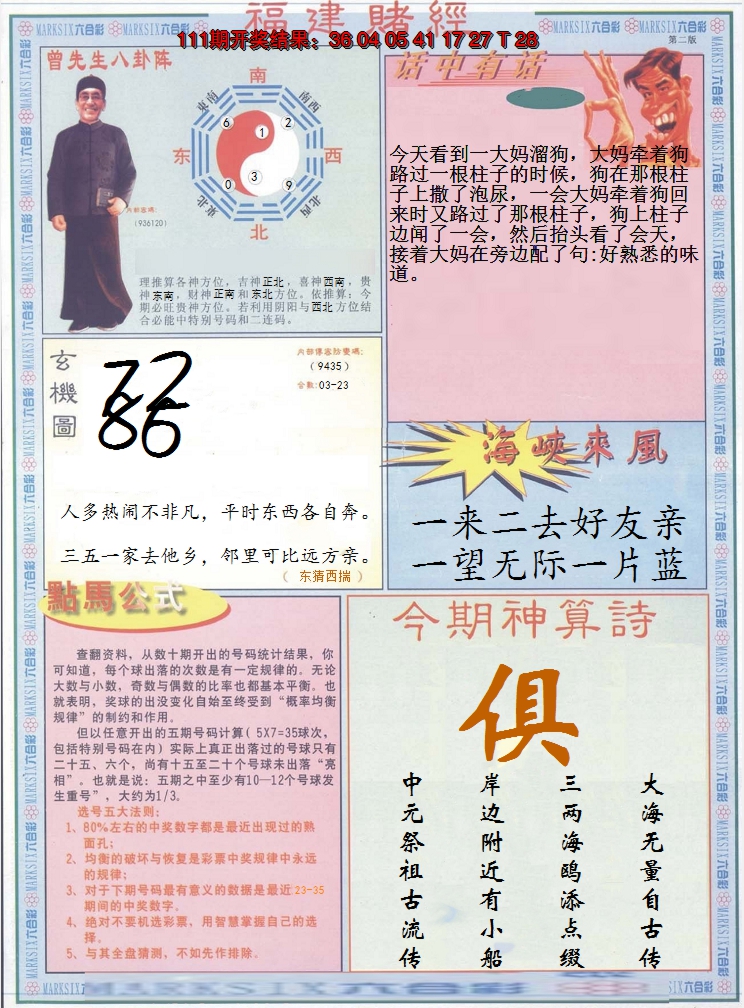 福建賭經
111期开奖结果：36 04 05 41 17 27 T 28
第二版
曾先生八卦阵
南
東南
南西
6
1
2
东
西
0
3
9
東北
北西
北
（936120）
理推算各神方位，吉神正北，喜神西南，贵
神东南，财神正南和东北方位。依推算：今
期必旺贵神方位。若利用阴阳与西北方位结
合必能中特别号码和二连码。
话中有话
今天看到一大妈溜狗，大妈牵着狗
路过一根柱子的时候，狗在那根柱
子上撒了泡尿，一会大妈牵着狗回
来时又路过了那根柱子，狗上柱子
边闻了一会，然后抬头看了会天，
接着大妈在旁边配了句:好熟悉的味
道。
玄機圖
（9435）
合数:03-23
72
86
人多热闹不非凡，平时东西各自奔。
三五一家去他乡，邻里可比远方亲。
（ 东猜西揣 ）
海峽來風
一来二去好友亲
一望无际一片蓝
點馬公式
查翻资料，从数十期开出的号码统计结果，你
可知道，每个球出落的次数是有一定规律的。无论
大数与小数，奇数与偶数的比率也都基本平衡。也
就表明，奖球的出没变化自始至终受到“概率均衡
规律”的制约和作用。
但以任意开出的五期号码计算（5X7=35球次，
包括特别号码在内）实际上真正出落过的号球只有
二十五、六个，尚有十五至二十个号球未出落“亮
相”。也就是说：五期之中至少有10—12个号球发
生重号”，大约为1/3。
选号五大法则：
1、80%左右的中奖数字都是最近出现过的熟
面孔；
2、均衡的破坏与恢复是彩票中奖规律中永远
的规律；
3、对于下期号码最有意义的数据是最近23-35
期间的中奖数字。
4、绝对不要机选彩票，用智慧掌握自己的选
择。
5、与其全盘猜测，不如先作排除。
今期神算詩
俱
大海无量自古传
三两海鸥添点缀
岸边附近有小船
中元祭祖古流传
MARKSIX六合彩